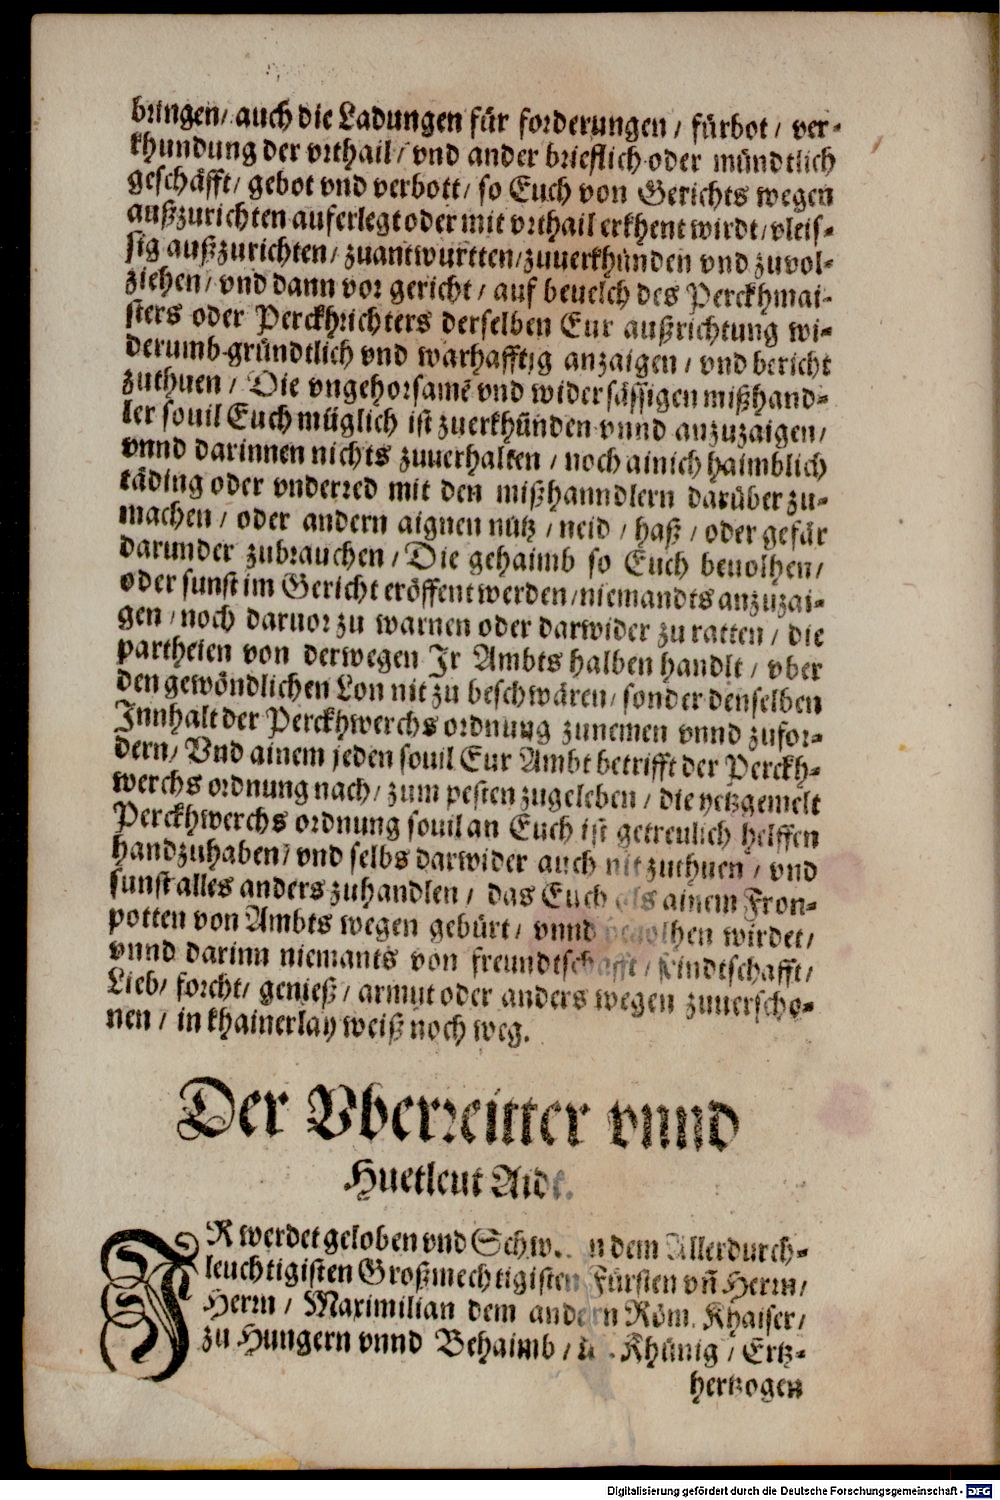 bringen/ auch die Ladungen für forderungen / fürbot / ver-
khundung der vrthail / vnd ander brieflich oder mündtlich
geschäfft/ gebot vnd verbott/ so Euch von Gerichts wegen
außzurichten auferlegt oder mit vrthail erkhent wirdt/ vleis-
sig außzurichten/ zuantwurtten/ zuuerkhünden vnd zuvol-
ziehen/ vnd dann vor gericht / auf beuelch des Perckhmai-
sters oder Perckhrichters derselben Eur außrichtung wi-
derumb gründtlich vnd warhafftig anzaigen / vnd bericht
zuthuen / Die vngehorsamẽ vnd widersässigen mißhand-
ler souil Euch müglich ist zuerkhünden vnnd anzuzaigen/
vnnd darinnen nichts zuuerhalten / noch ainich haimblich
täding oder vnderred mit den mißhanndlern darüber zu-
machen / oder andern aignen nutz / neid / haß / oder gefär
darunder zubrauchen / Die gehaimb so Euch beuolhen/
oder sunst im Gericht eröffent werden/ niemandts anzuzai-
gen / noch daruor zu warnen oder darwider zu ratten / die
partheien von derwegen Ir Ambts halben handlt / vber
den gewöndlichen Lon nit zu beschwären/ sonder denselben
Innhalt der Perckhwerchs ordnung zunemen vnnd zufor-
dern/ Vnd ainem jeden souil Eur Ambt betrifft der Perckh-
werchs ordnung nach/ zum pesten zugeleben / die yetzgemelt
Perckhwerchs ordnung souil an Euch ist getreulich helffen
handzuhaben/ vnd selbs darwider auch nit zuthuen / vnd
sunst alles anders zuhandlen / das Euch als ainem Fron-
potten von Ambts wegen gebürt/ vnnd beuolhen wirdet/
vnnd darinn niemants von freundtschafft / feindtschafft/
Lieb/ forcht/ genieß / armut oder anders wegen zuuerscho-
nen / in khainerlay weiß noch weg.
Der Vberreitter vnnd
Huetleut Aidt.
IR werdet geloben vnd Schw. n dem Allerdurch-
leuchtigisten Großmechtigisten Fürsten vñ Herrn/
Herrn / Maximilian dem andern Röm. Khaiser/
zu Hungern vnnd Behaimb / Khünig / Ertz-
hertzogen
Digitalisierung gefördert durch die Deutsche Forschungsgemeinschaft - DFG